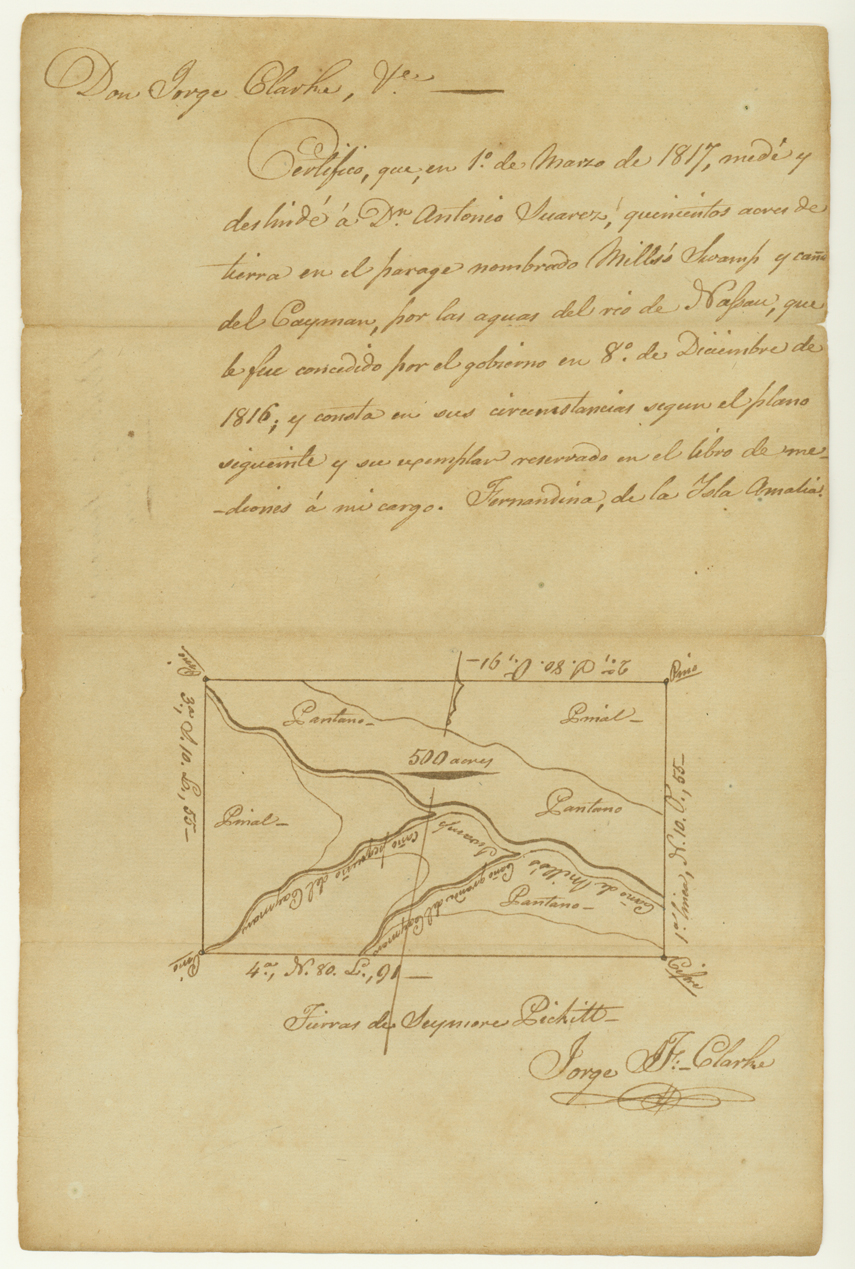 Don Jorge Clarke, Va. —
Certifico, que, en 1.º de Marzo de 1817, medé y
deslindé á Dn. Antonio Suarez, quinientos acres de
tierra en el parage nombrado Mills's Swamp y caño
del Cayman, por las aguas del rio de Nassau, que
le fue concedido por el gobierno en 8.º de Diciembre de
1816; y consta en sus circunstancias segun el plano
sigueinte y su exemplar reservado en el libro de me-
-diciones á mi cargo. Fernandina, de la Isla Amalia.
Pino
2.a, S. 80. O., 91—
Pino
Pantano—
Pinal—
500 acres
3.a, S. 10. E., 55—
1.a linea, N. 10. O., 55—
Pinal—
Pantano
Caño pequeño del Cayman
Swamp
Caño grande del Cayman
Caño de Mills's
Pantano—
Pino
4.a, N. 80. E., 91 —
Tierras de Seymore Pickitt—
Jorge J. F. Clarke